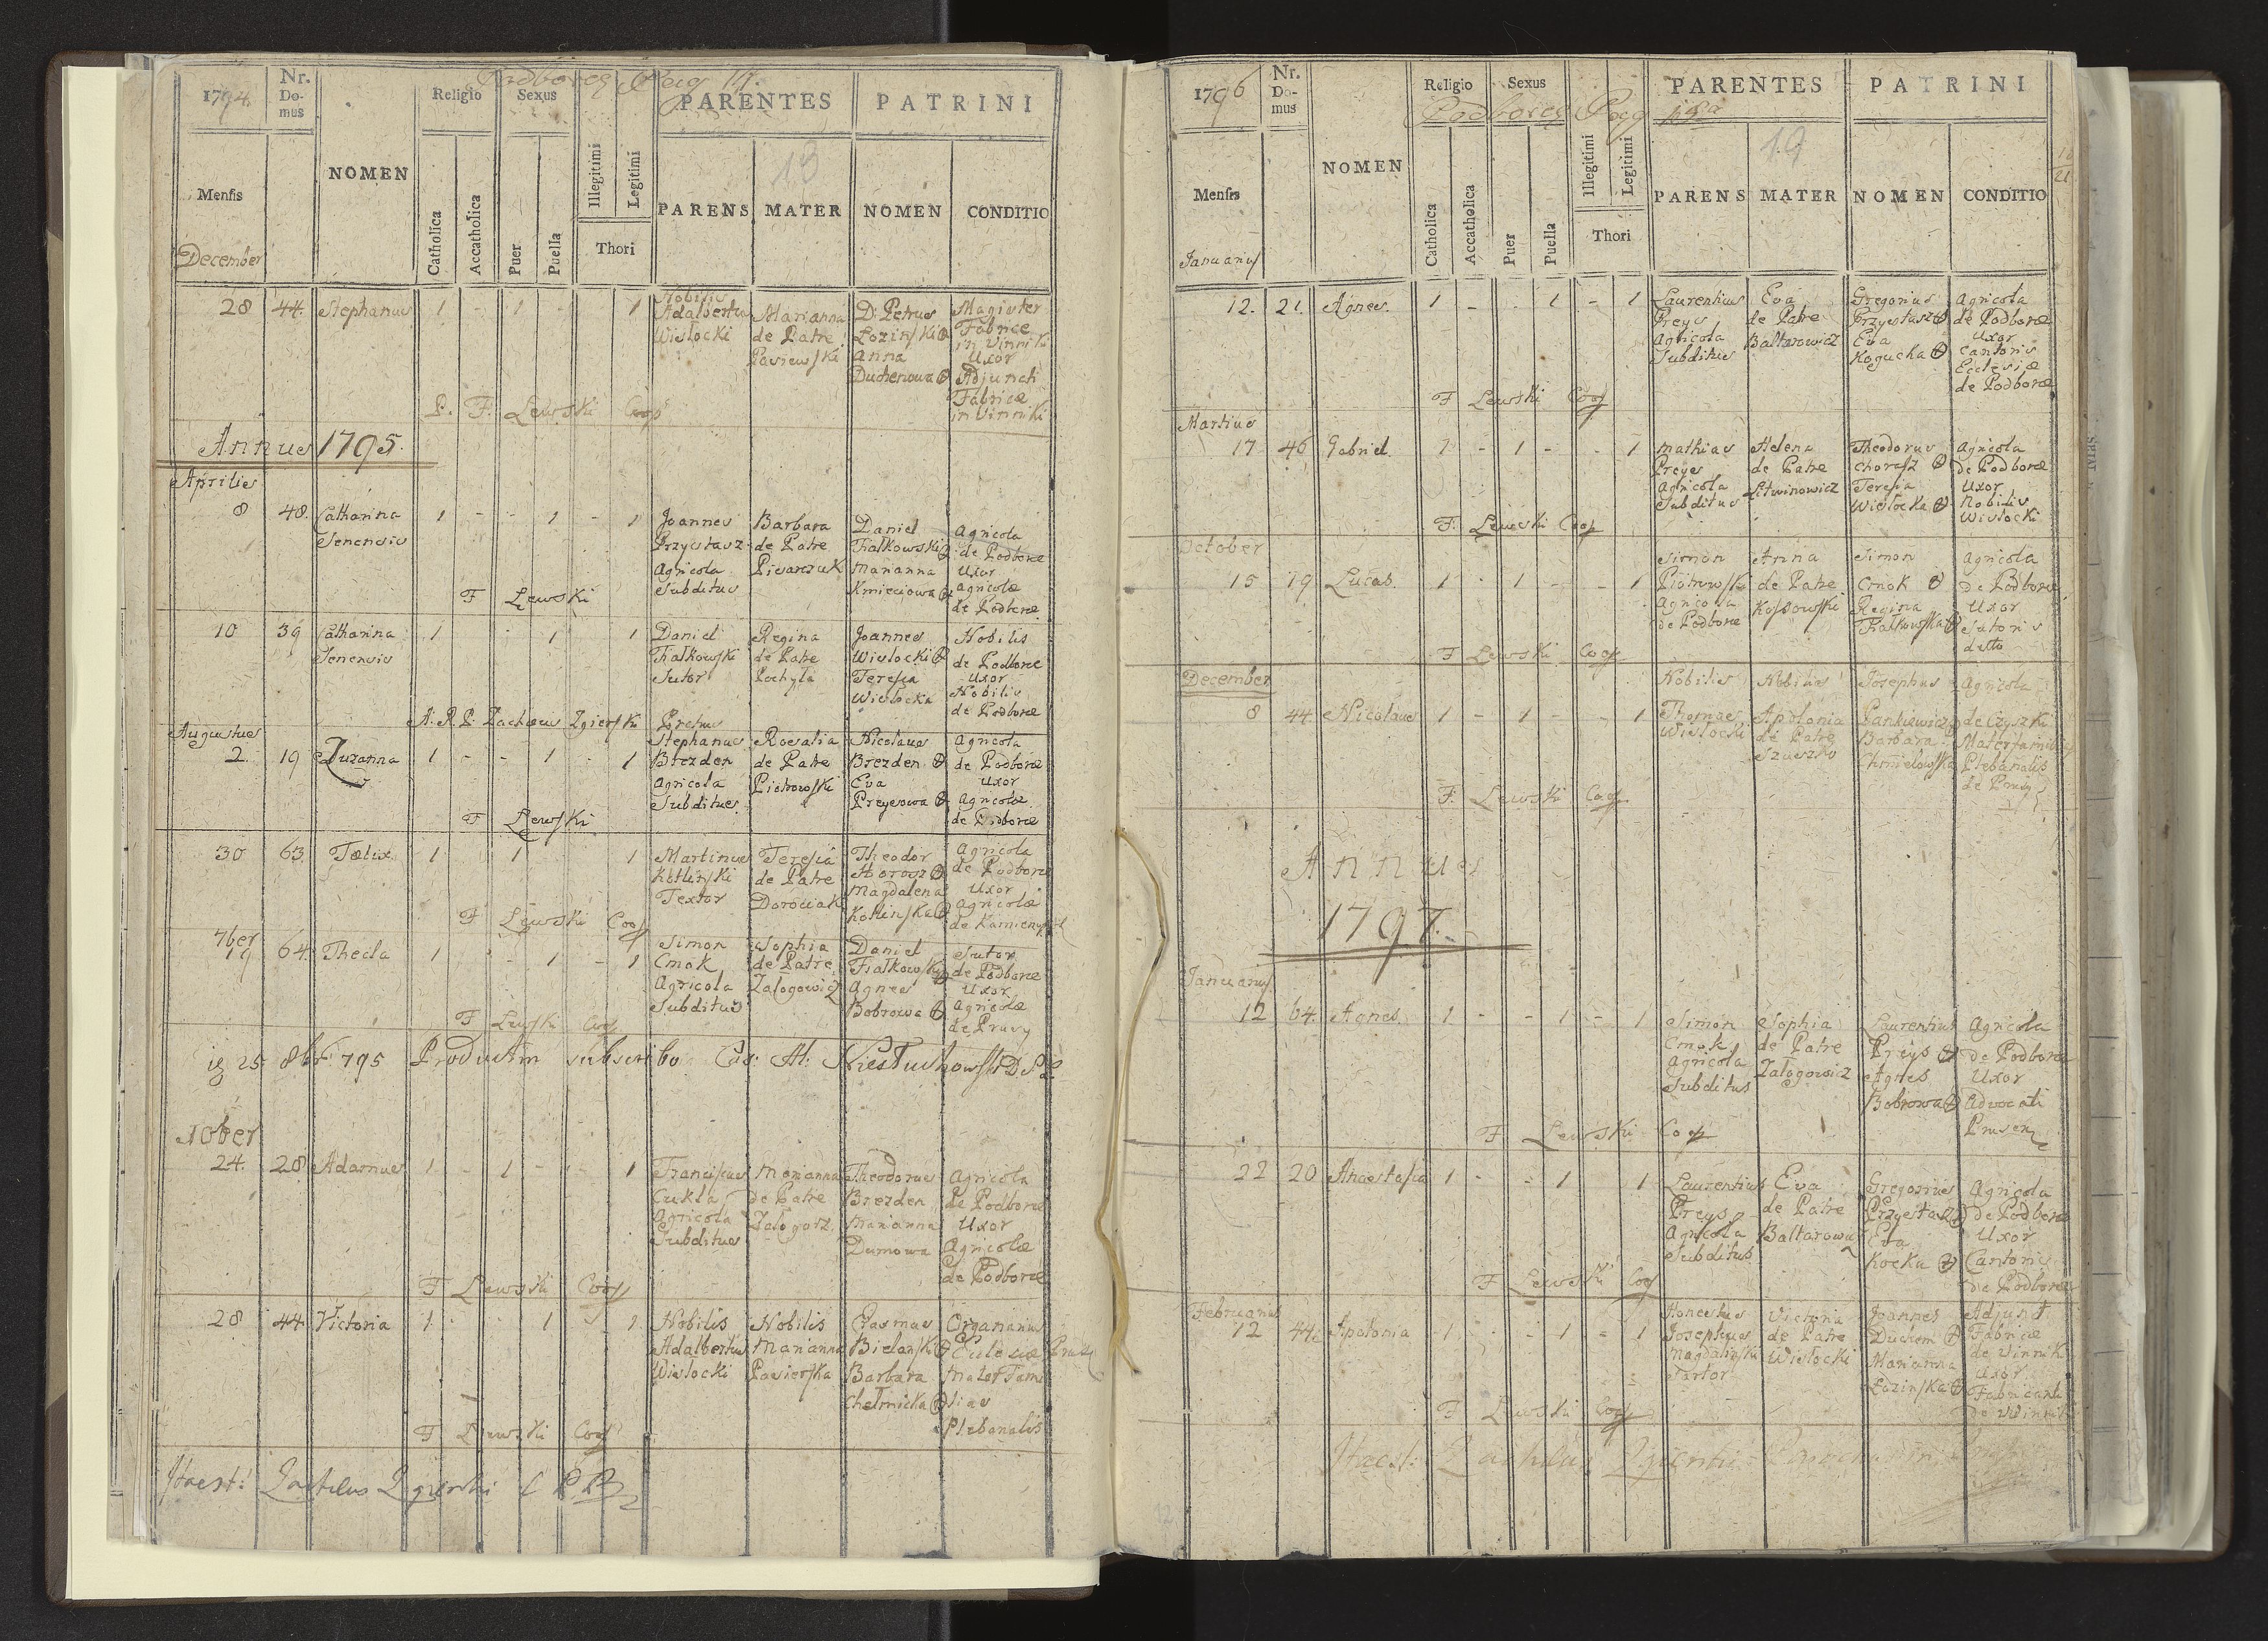 1794.
Nr. Domus
NOMEN
Religio
Sexus
PARENTES
PATRINI
Mensis
Catholica
Accatholica
Puer
Puella
Illegitimi
Legitimi
Thori
PARENS
MATER
NOMEN
CONDITIO
13
December
28 44. Stephanus 1 - 1 - 1
Nobilis
Adalbertus
Wisłocki
Marianna
de Patre
D: Petrus
Łozinski
Anna
Magister
Fabrice
in Vinniki
Uxor
Adjuncti
Fabricæ
in Vinniki
P. F. Lewski Coop
Annus 1795.
Aprilis
8 48. Catharina 1 - - 1 - 1
Senensis
Joannes
Przystasz
Agricola
Subditus
Barbara
de Patre
Pivarczuk
Daniel
Fiałkowski
Marianna
Kmieciowa
Agricola
de Podborce
Uxor
Agricolæ
de Podborce
F Lewski
10 39 Catharina 1 1 1
Senensis
Daniel
Fiałkowski
Sutor
Regina
de Patre
Pochyla
Joannes
Wisłocki
Teresia
Wisłocka
Nobilis
de Podborce
Uxor
Nobilis
de Podborce
A. R. P. Zacheus Zgierski
Augustus
2. 19 Zuzanna 1 - - 1 - 1
Stephanus
Brezden
Agricola
Subditus
Rosalia
de Patre
Piotrowski
Nicolaus
Brezden
Eva
Preysowa
Agricola
de Podborce
Uxor
Agricolæ
de Podborce
F Lewski
30 63. Fælix 1 1 1
Martinus
Kotlinski
Textor
Teresia
de Patre
Theodor
Horosz
Magdalena
Kotlinska
Agricola
de Podborce
Uxor
Agricolæ
F Lewski Coop
7ber
19 64. Thecla 1 - 1 - 1
Simon
Cmok
Agricola
Subditus
Sophia
de Patre
Zalogowicz
Daniel
Fiałkowski
Agnes
Bobrowa
Sutor
de Podborce
Uxor
Agricolæ
de Prusy
F Lewski Coop
25 8br 795 Productum subscribo
10ber
24. 28. Adamus 1 - 1 - 1
Franciscus
Cukla
Agricola
Subditus
Marianna
de Patre
Theodorus
Brezden
Marianna
Dumowa
Agricola
de Podborce
Uxor
Agricolæ
de Podborce
F Lewski Coop
28 44. Victoria 1 1 1.
Nobilis
Adalbertus
Wisłocki
Nobilis
Marianna
Erasmus
Bielanski
Barbara
Chełmicka
Organarius
Ecclesiæ
Mater Fami
lias
Plebanalis
F Lewski Coop
1796
Nr. Domus
NOMEN
Religio
Sexus
PARENTES
PATRINI
Podborce
19
Mensis
Catholica
Accatholica
Puer
Puella
Illegitimi
Legitimi
Thori
PARENS
MATER
NOMEN
CONDITIO
Januarius
12. 21. Agnes. 1 - 1 - 1
Laurentius
Preys
Agricola
Subditus
Eva
de Patre
Baltarowicz
Gregorius
Przystasz
Eva
Kogucha
Agricola
de Podborce
Uxor
Cantoris
Ecclesiæ
de Podborce
F Lewski Coop
Martius
17 46 Gabriel. 1 - 1 - - 1
Mathias
Preys
Agricola
Subditus
Helena
de Patre
Litwinowicz
Theodorus
Teresia
Wisłocka
Agricola
de Podborce
Uxor
Nobilis
Wisłocki
F. Lewski Coop
October
15 19 Lucas. 1 - 1 - - 1
Simon
Piotrowski
Agricola
de Podborce
Anna
de Patre
Kossowski
Simon
Cmok
Regina
Fiałkowska
Agricola
de Podborce
Uxor
Sutoris
detto
F Lewski Coop
December
8 44. Nicolaus 1 - 1 - - 1
Nobilis
Thomas
Wisłocki
Nobilis
Apolonia
de Patre
Josephus
Pankiewicz
Barbara
Chmielowska
Agricola
de Czyszki
Mater familias
Plebanalis
de Prusy
F. Lewski Coop
Annus
1797.
Januarius
12 64. Agnes 1 - - 1 - 1
Simon
Cmok
Agricola
Subditus
Sophia
de Patre
Zalogowicz
Laurentius
Preys
Agnes
Bobrowa
Agricola
de Podborce
Uxor
Advocati
F Lewski Coop
22 20 Anastasia 1 - - 1 1
Laurentius
Preys
Agricola
Subditus
Eva
de Patre
Gregorius
Przystasz
Eva
Kocka
Agricola
de Podborce
Uxor
Cantoris
de Podborce
F Lewski Coop
Februarius
12 44. Apolonia 1 - - 1 - 1
Honestus
Josephus
Magdalinski
Sartor
Victoria
de Patre
Wisłocki
Joannes
Duchem
Marianna
Łozinska
Adjunt
Fabricæ
de Vinniki
Uxor
Fabricanti
de Winniki
F Lewski Coop